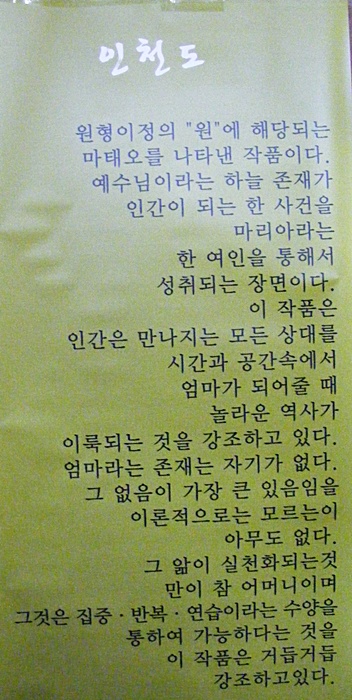 인천도
원형이정의 "원"에 해당되는
마태오를 나타낸 작품이다.
예수님이라는 하늘 존재가
인간이 되는 한 사건을
마리아라는
한 여인을 통해서
성취되는 장면이다.
이 작품은
인간은 만나지는 모든 상대를
시간과 공간속에서
엄마가 되어줄 때
놀라운 역사가
이룩되는 것을 강조하고 있다.
엄마라는 존재는 자기가 없다.
그 없음이 가장 큰 있음임을
이론적으로는 모르는이
아무도 없다.
그 앎이 실천화되는것
만이 참 어머니이며
그것은 집중·반복·연습이라는 수양을
통하여 가능하다는 것을
이 작품은 거듭거듭
강조하고있다.